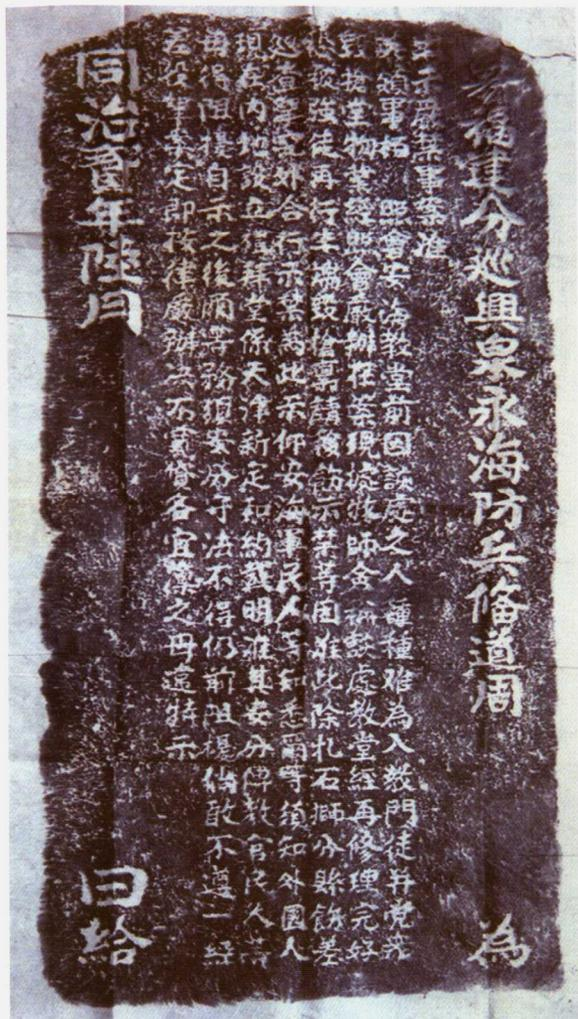 福建分巡興泉永海防兵備道周 為
出示嚴禁事案准
領事 照會安海教堂前因該處之人種種難為入教門徒并党衆
毀搶堂物業經照會嚴辦在案現據牧師 稱該處教堂經再修理完好
恐搶強徒再行生端毀搶稟請飭示禁等因准此除札石獅分縣飭差
巡查彈壓外合行示禁為此示仰安海軍民人等知悉爾等須知外國人
現在內地設立禮拜堂係天津新定和約載明准其安分傳教官民人等
毋得阻撓自示之後爾等務須安分守法不得仍前阻撓倘敢不遵一經
差役拏案定即按律嚴辦決不寬貸各宜凜之毋違特示
同治 年陸月 日給